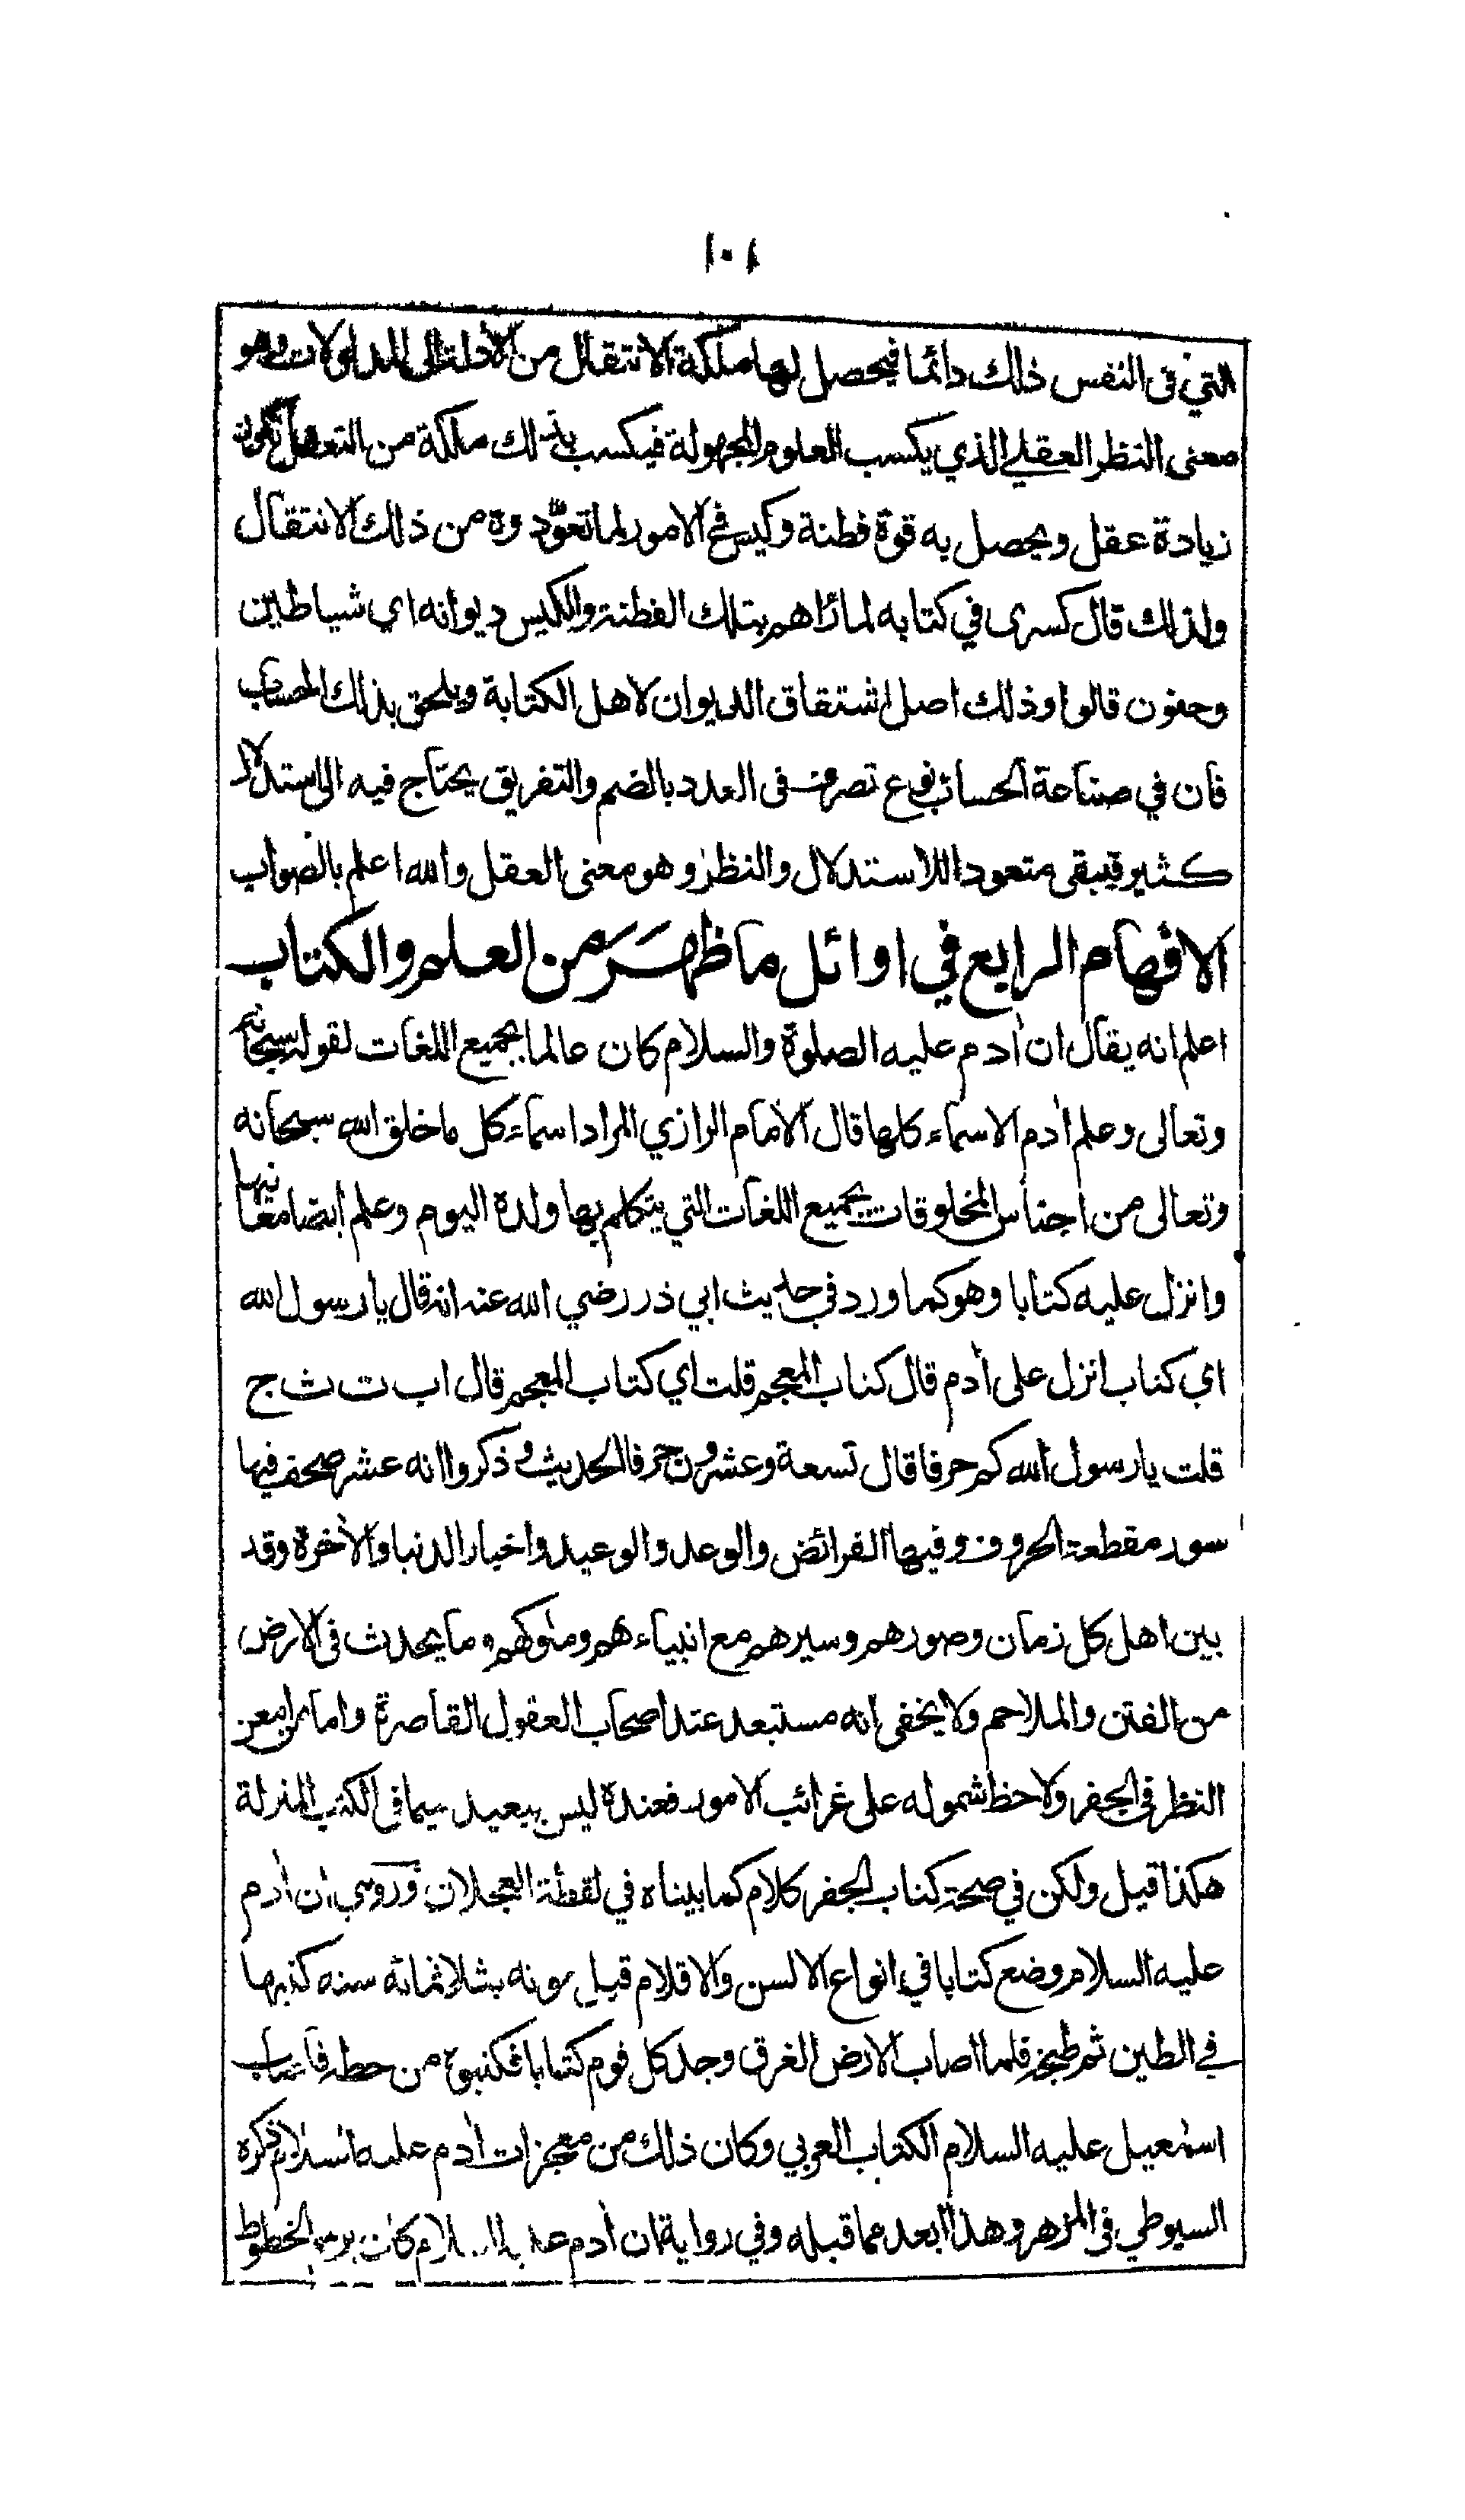 ١٠١
التي فى النفس ذلك دائما فيحصل لها ملكة الانتقال من الأدلة الى المدلولات وهو
معنى النظر العقلي الذي يكسب العلوم المجهولة فيكسب بذلك ملكة من التعقل تكون
زيادة عقل ويحصل به قوة فطنة وكيس في الامور لما تعوّدوه من ذلك الانتقال
ولذلك قال كسرى في كتابه لما رٰاهم بتلك الفطنة والكيس ديوانه اي شياطين
وجنون قالوا وذلك اصل اشتقاق الديوان لاهل الكتابة ويلحق بذلك الحساب
فان في صناعة الحساب نوع تصرف فى العدد بالضم والتفريق يحتاج فيه الى استدلال
كثير فيبقى متعودا للاستدلال والنظر وهو معنى العقل والله اعلم بالصواب
الافهام الرابع في اوائل ما ظهَرَ من العلم والكتاب
اعلم انه يقال ان اٰدم عليه الصلوة والسلام كان عالما بجميع اللغات لقوله سبحانه
وتعالى وعلم اٰدم الاسماء كلها قال الامام الرازي المراد اسماء كل ما خلق الله سبحانه
وتعالى من اجناس المخلوقات بجميع اللغات التي يتكلم بها ولده اليوم وعلم ايضا معانيها
وانزل عليه كتابا وهو كما ورد في حديث ابي ذر رضي الله عنه انه قال يا رسول الله
اي كتاب انزل على اٰدم قال كتاب المعجم قلت اي كتاب المعجم قال ا ب ت ث ج
قلت يا رسول الله كم حرفا قال تسعة وعشرون حرفا الحديث وذكروا انه عشر صحف فيها
سور مقطعة الحروف وفيها الفرائض والوعد والوعيد واخبار الدنيا والاٰخرة وقد
بين اهل كل زمان وصورهم وسيرهم مع انبياءهم وملوكهم وما يحدث فى الارض
من الفتن والملاحم ولا يخفى انه مستبعد عند اصحاب العقول القاصرة واما من امعن
النظر فى الجفر ولاحظ شموله على غرائب الامور فعنده ليس ببعيد سيما فى الكتب المنزلة
هكذا قيل ولكن في صحة كتاب الجفر كلام كما بيناه في لقطة العجلان وروي ان اٰدم
عليه السلام وضع كتابا في انواع الالسن والاقلام قبل موته بثلاثمائة سنه كتبها
في الطين ثم طبخه فلما اصاب الارض الغرق وجد كل قوم كتابا فكتبوه من خطه فاصاب
اسمٰعيل عليه السلام الكتاب العربي وكان ذلك من معجزات اٰدم عليه السلام ذكره
السيوطي فى المزهر وهذا ابعد مما قبله وفي رواية ان اٰدم عليه السلام كان يرسم الخطوط